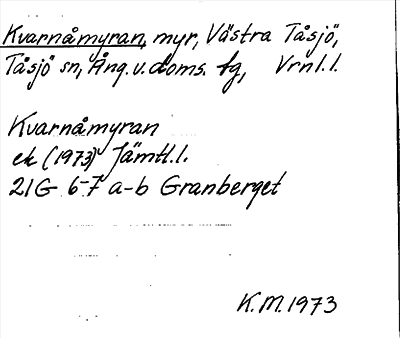 Kvarnåmyran, myr, Västra Tåsjö,
Tåsjö sn, Ång. v. doms. tg, Vrnl.l.
Kvarnåmyran
ek (1973) Jämtl.l.
21G 6-7 a-b Granberget
K.M. 1973